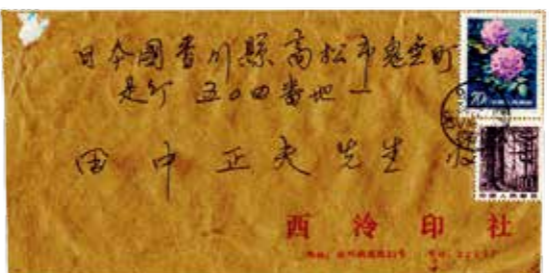 日本國香川縣高松市鬼無町
是竹 五〇四番地一
田中正夫先生 收
西泠印社
70